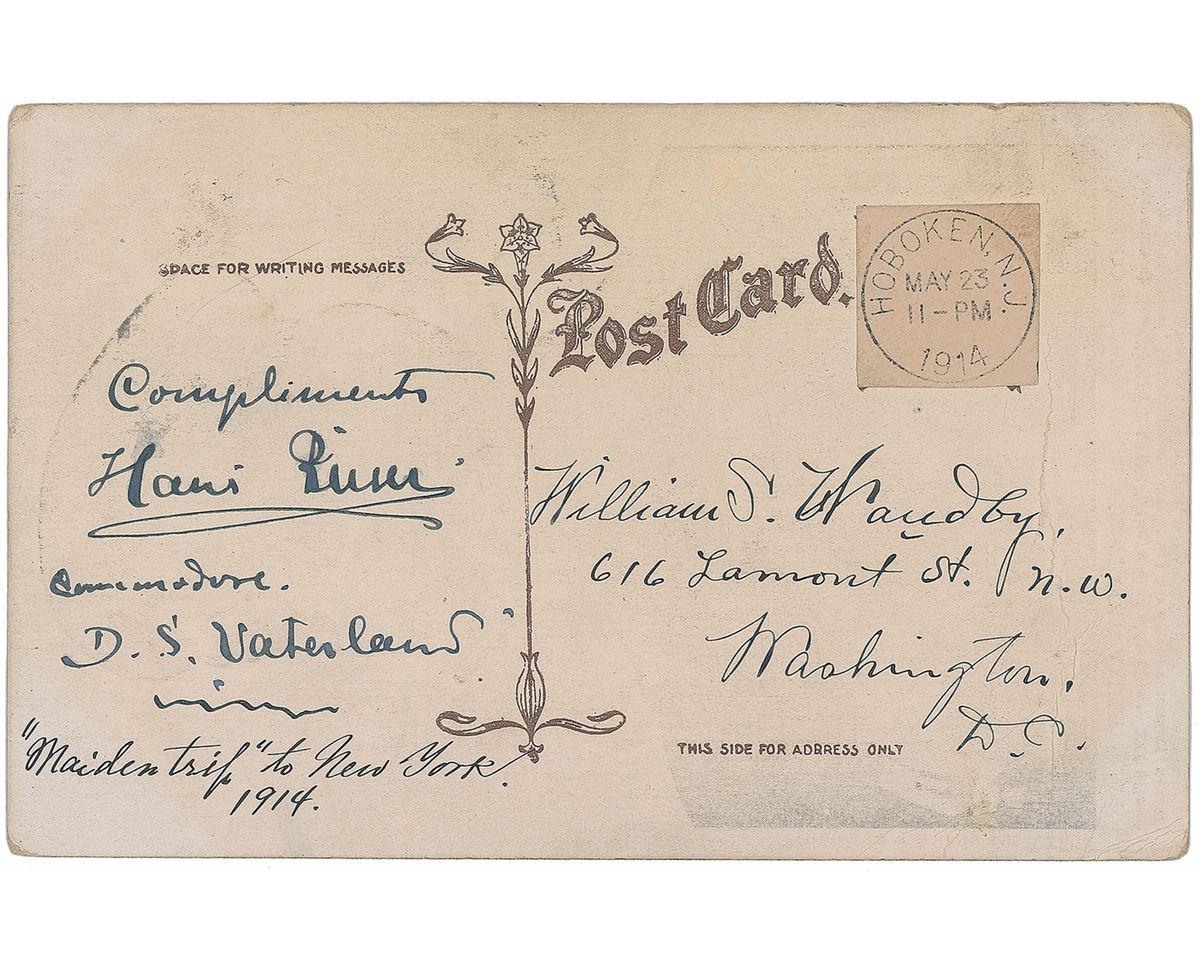 SPACE FOR WRITING MESSAGES
Post Card.
HOBOKEN, N.J.
MAY 23
11-PM
1914
Compliments
Hans
Commodore.
D. S. Vaterland
"Maiden trip" to New York.
1914.
William S. Waudby,
616 Lamont St. N.W.
Washington.
D.C.
THIS SIDE FOR ADDRESS ONLY